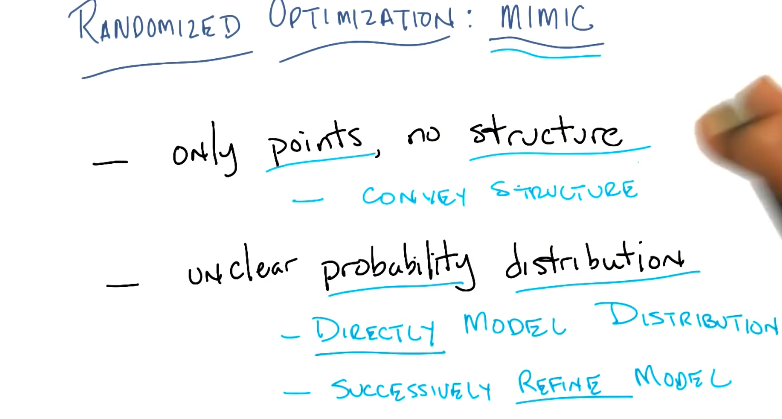 RANDOMIZED OPTIMIZATION: MIMIC
— only points, no structure
— CONVEY STRUCTURE
— unclear probability distribution
— DIRECTLY MODEL DISTRIBUTION
— SUCCESSIVELY REFINE MODEL